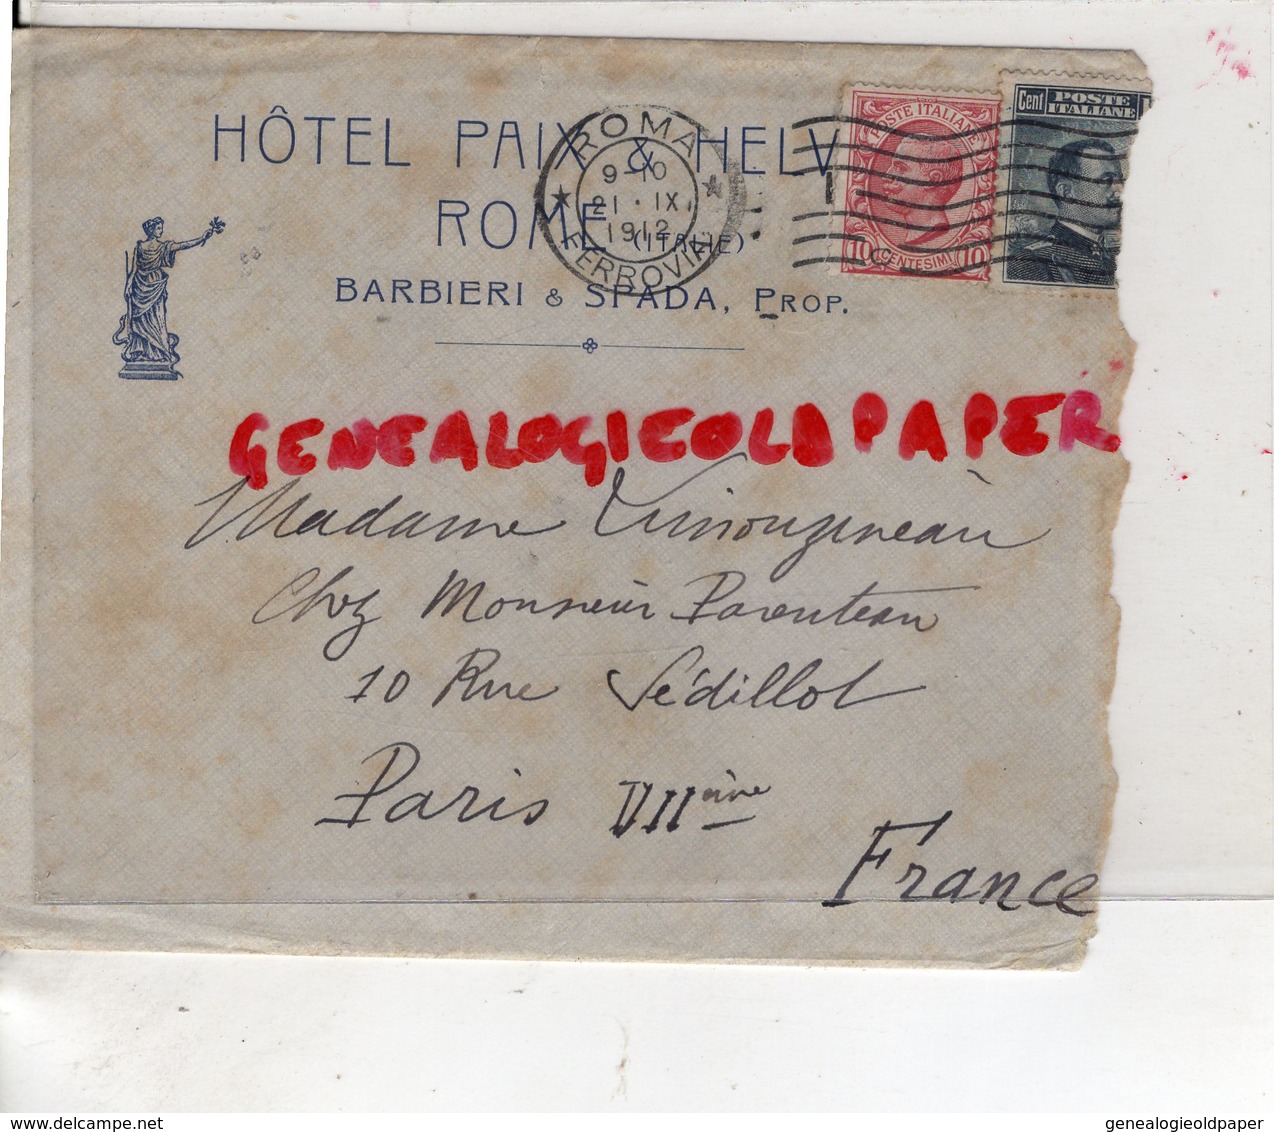 HÔTEL PAIX & HELV
ROME (ITALIE)
BARBIERI & SPADA, PROP.
ROMA
9-10
21 · IX
1912
FERROVIA
POSTE ITALIANE
10 CENTESIMI 10
Cent POSTE
ITALIANE
GENEALOGIEOLDPAPER
Madame
Chez Monsieur Parenteau
10 Rue Sédillot
Paris VIIème
France
www.delcampe.net
genealogieoldpaper